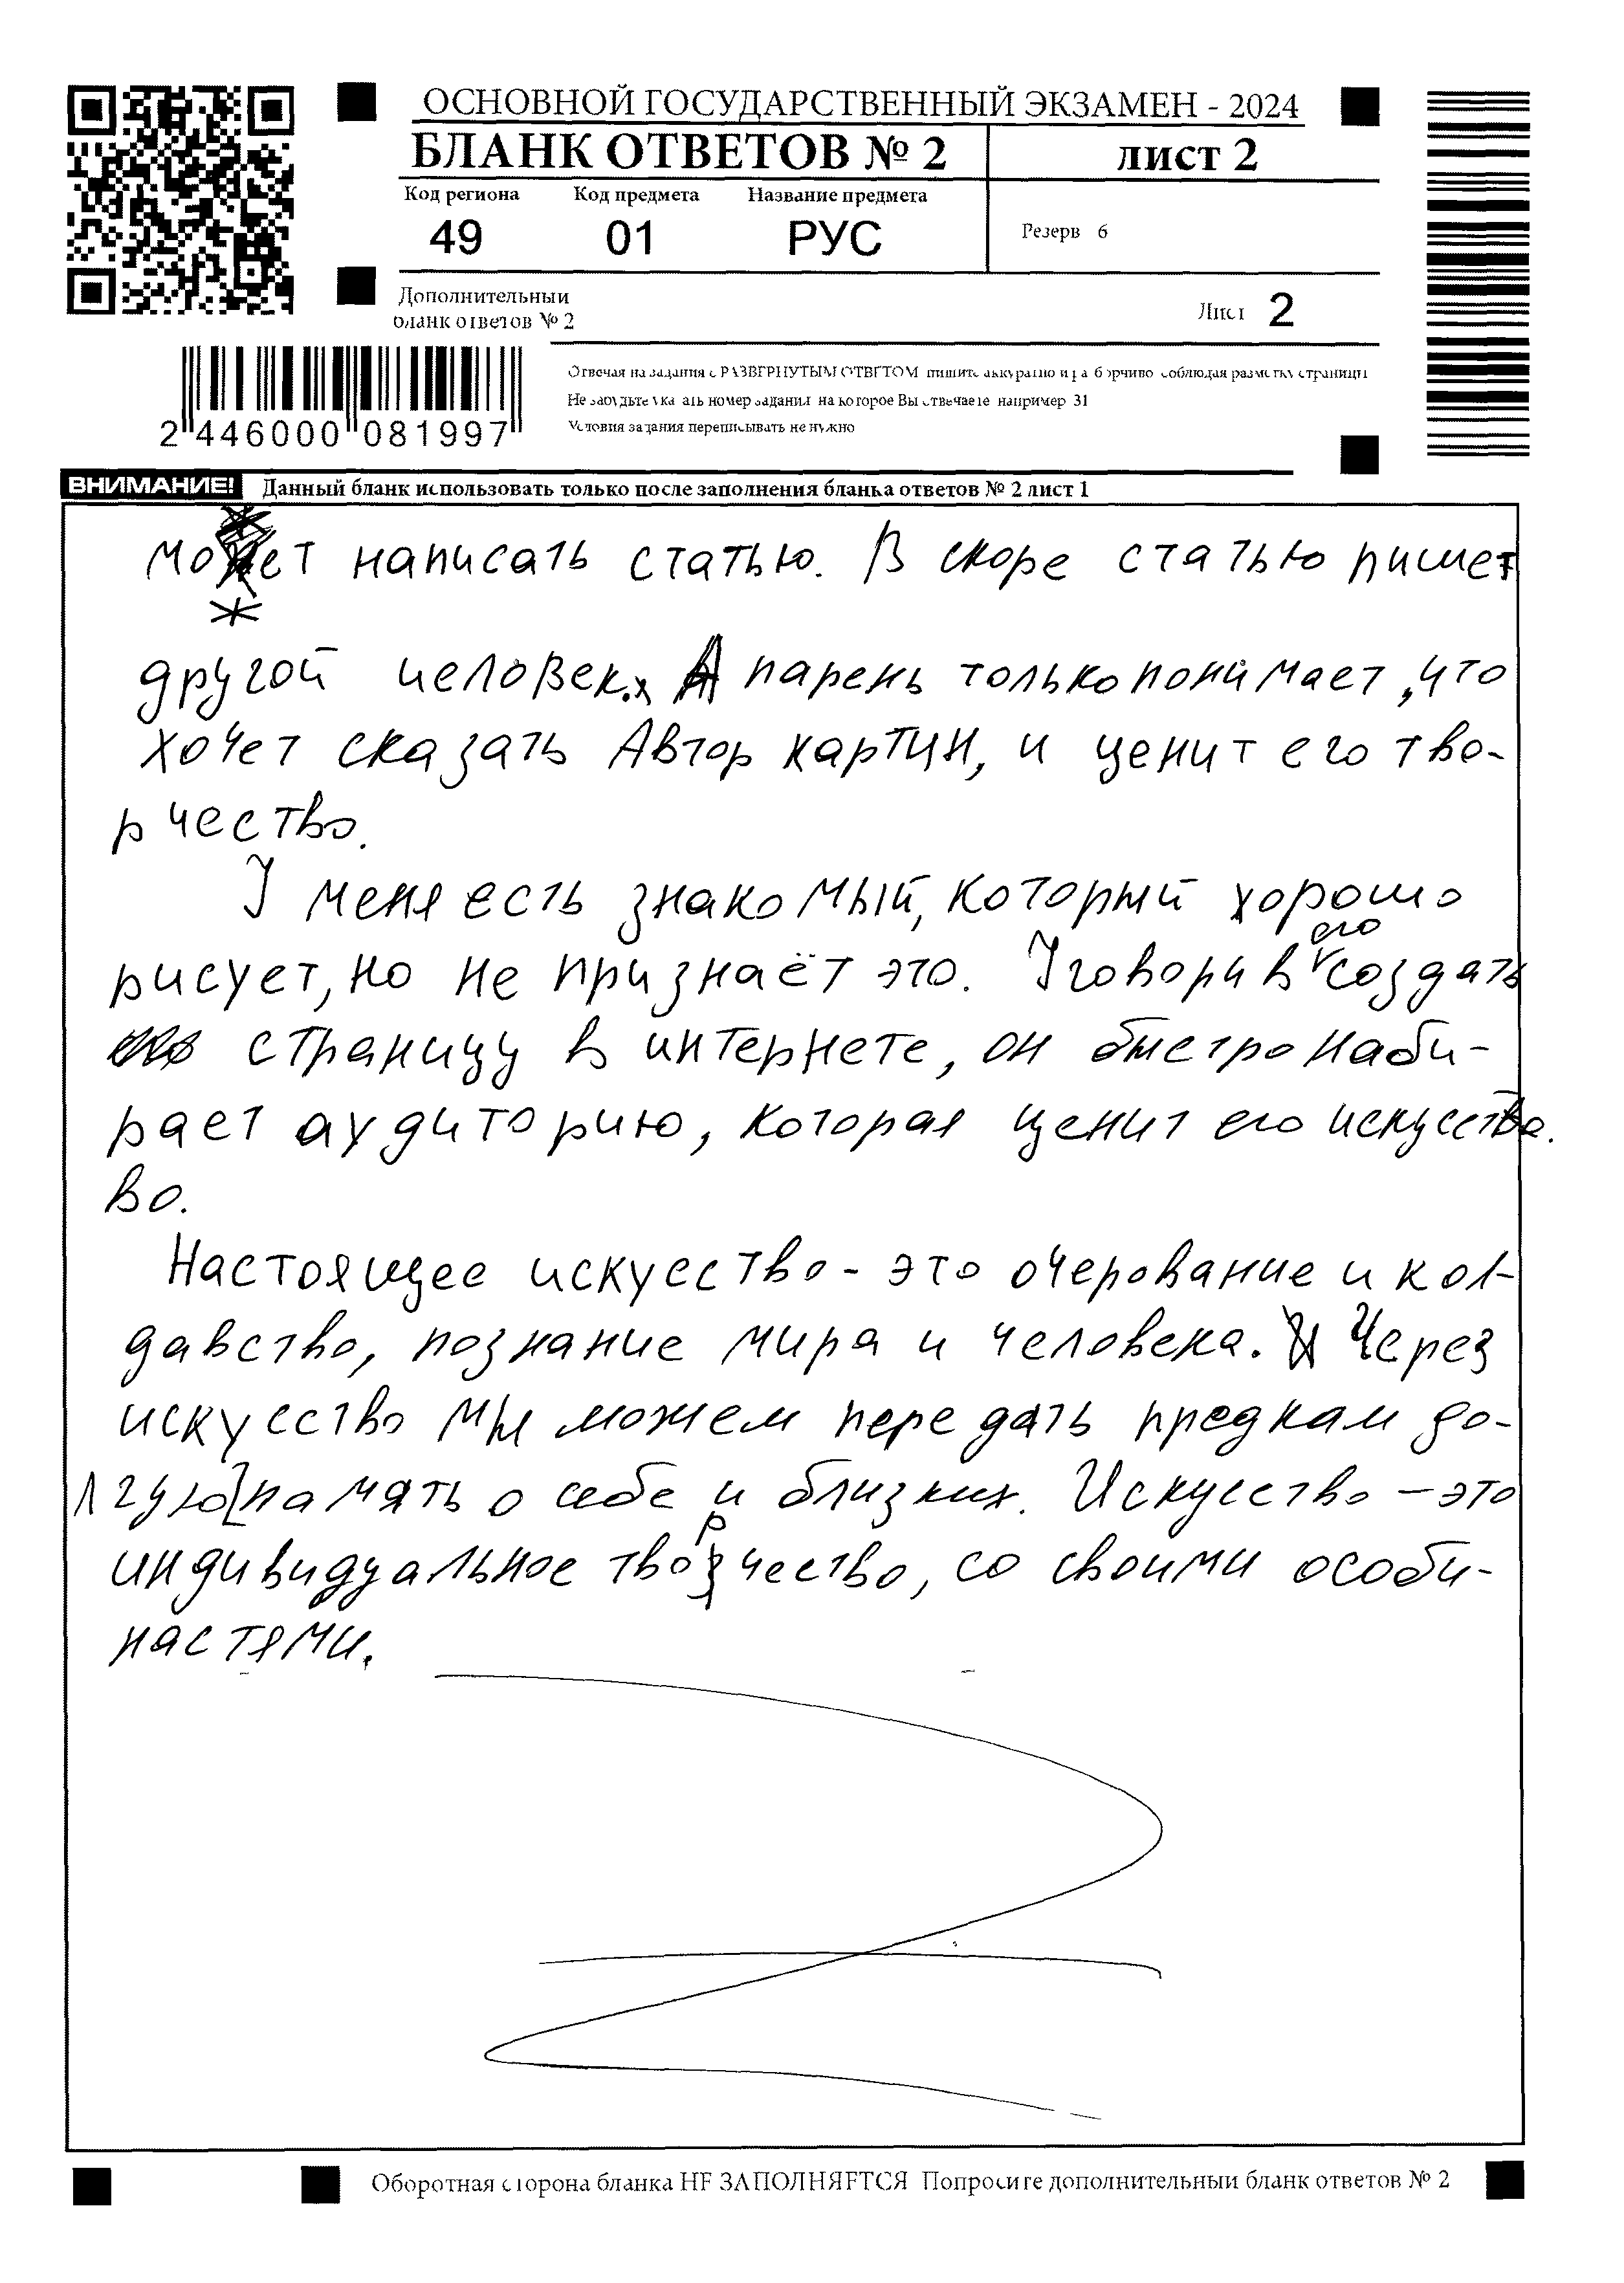 ОСНОВНОЙ ГОСУДАРСТВЕННЫЙ ЭКЗАМЕН - 2024
БЛАНК ОТВЕТОВ № 2
лист 2
Код региона Код предмета Название предмета
49 01 РУС
Резерв 6
Дополнительный
бланк ответов № 2
Лист 2
2 446000 081997
Отвечая на задания с РАЗВЕРНУТЫМ ОТВЕТОМ пишите аккуратно и разборчиво соблюдая разметку страницы
Не забудьте указать номер задания на которое Вы отвечаете например 31
Условия задания переписывать не нужно
ВНИМАНИЕ! Данный бланк использовать только после заполнения бланка ответов № 2 лист 1
может написать статью. В скоре статью пишет
ж
другой человек. А парень только понимает, что
хочет сказать Автор картин, и ценит его тво-
рчество.
У меня есть знакомый, который хорошо
рисует, но не признаёт это. Уговорив его создать
страницу в интернете, он быстро наби-
рает аудиторию, которая ценит его искусство.
во.
Настоящее искусство - это очерование и кол-
давство, познание мира и человека. Через
искусство мы можем передать предкам до-
лгую память о себе и близких. Искусство - это
индивидуальное творчество, со своими особи-
настями.
Оборотная сторона бланка НЕ ЗАПОЛНЯЕТСЯ Попросите дополнительный бланк ответов № 2